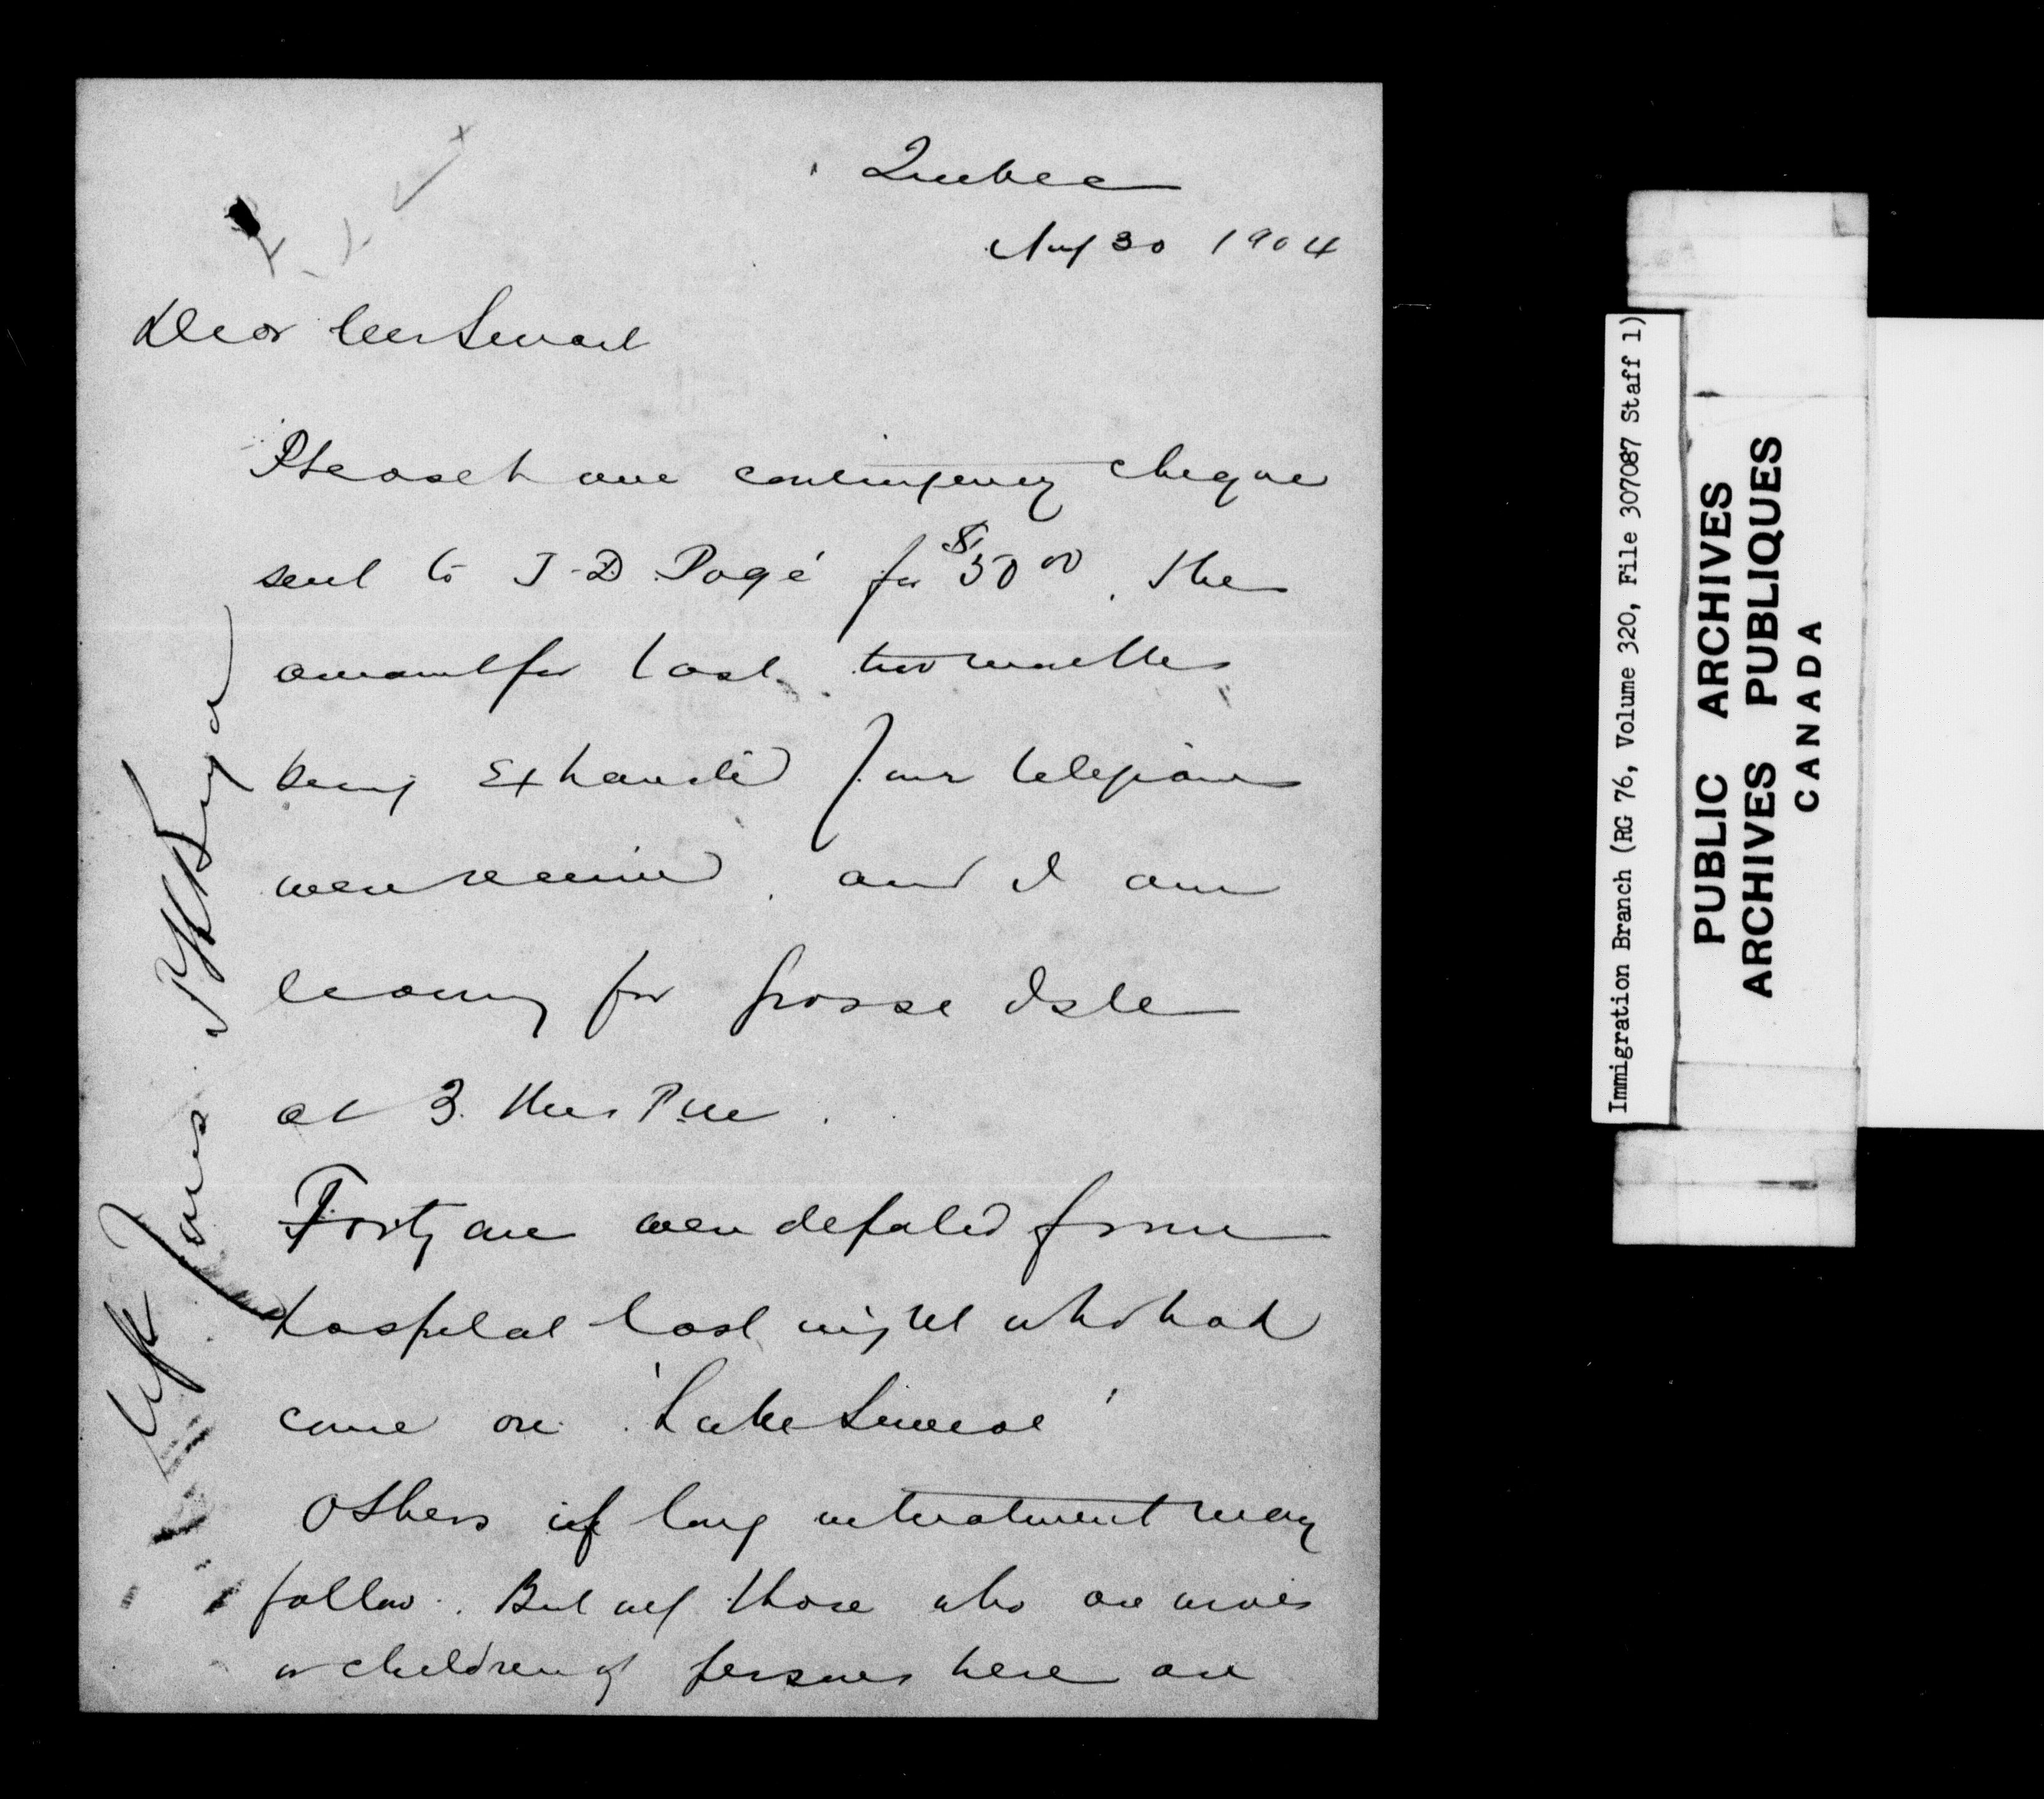 Quebec
Aug 30 1904
Dear Mr Smart
Please have contingency cheque
sent to J-D Pagé for $50 00. The
amount for last two months
being Exhausted. Your telegrams
were received. and I am
leaving for Grosse Isle
at 3. this P.M.
Forty one were deported from
hospital last night who had
come on 'Lake Simcoe'
Others if long in treatment may
follow. But all those who are wives
or children of persons here are
Yours P H Bryce
Immigration Branch (RG 76, Volume 320, File 307087 Staff 1)
PUBLIC ARCHIVES
ARCHIVES PUBLIQUES
CANADA